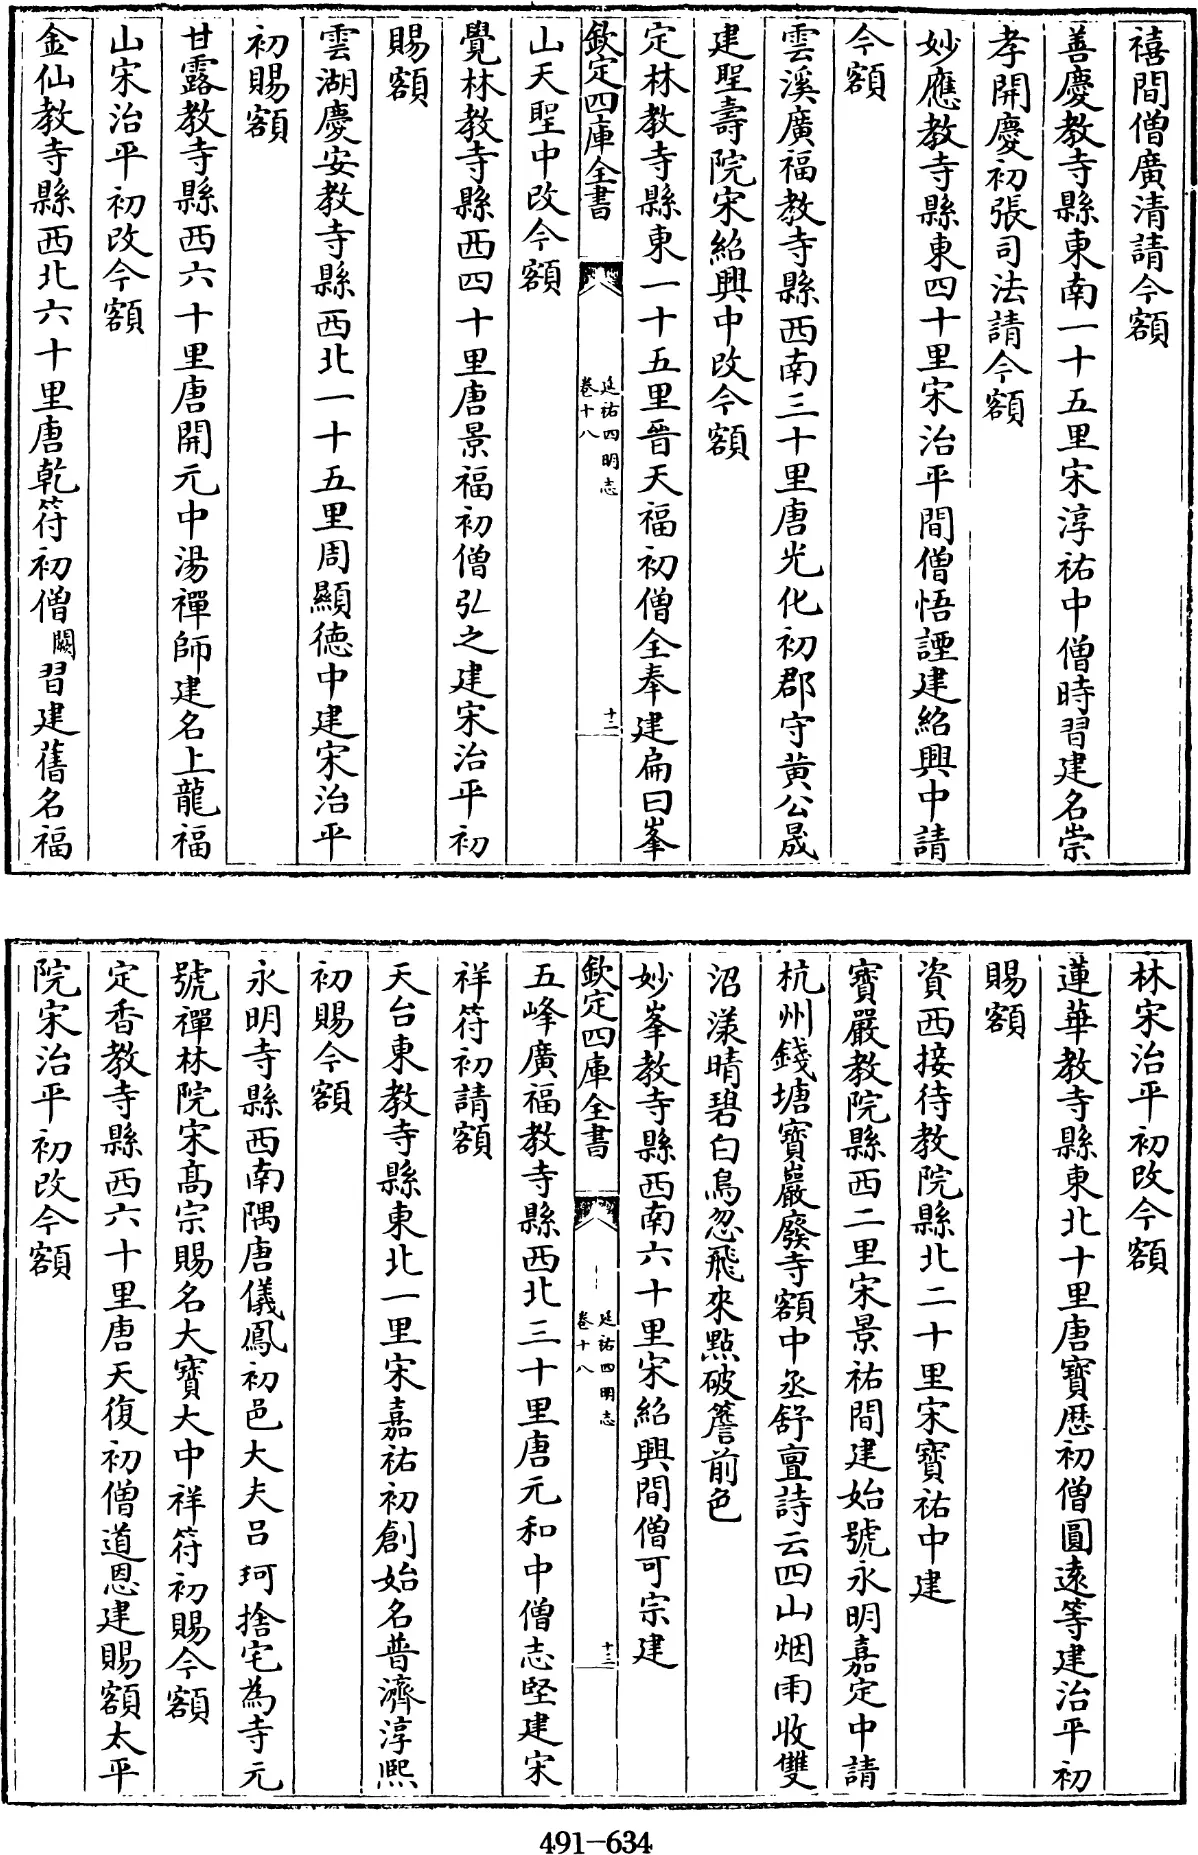 禧間僧廣清請今額
善慶教寺縣東南一十五里宋淳祐中僧時習建名崇
孝開慶初張司法請今額
妙應教寺縣東四十里宋治平間僧悟諲建紹興中請
今額
雲溪廣福教寺縣西南三十里唐光化初郡守黄公晟
建聖壽院宋紹興中改今額
定林教寺縣東一十五里晉天福初僧全奉建扁曰峯
欽定四庫全書
延祐四明志
卷十八
十二
山天聖中改今額
覺林教寺縣西四十里唐景福初僧弘之建宋治平初
賜額
雲湖慶安教寺縣西北一十五里周顯徳中建宋治平
初賜額
甘露教寺縣西六十里唐開元中湯禪師建名上龍福
山宋治平初改今額
金仙教寺縣西北六十里唐乾符初僧闕習建舊名福
林宋治平初改今額
蓮華教寺縣東北十里唐寳歴初僧圓逺等建治平初
賜額
資西接待教院縣北二十里宋寳祐中建
寳嚴教院縣西二里宋景祐間建始號永明嘉定中請
杭州錢塘寳巖廢寺額中丞舒亶詩云四山烟雨收雙
沼漾晴碧白鳥忽飛來點破簷前色
妙峯教寺縣西南六十里宋紹興間僧可宗建
欽定四庫全書
延祐四明志
卷十八
十三
五峰廣福教寺縣西北三十里唐元和中僧志堅建宋
祥符初請額
天台東教寺縣東北一里宋嘉祐初創始名普濟淳熙
初賜今額
永明寺縣西南隅唐儀鳳初邑大夫吕珂捨宅為寺元
號禪林院宋髙宗賜名大寳大中祥符初賜今額
定香教寺縣西六十里唐天復初僧道恩建賜額太平
院宋治平初改今額
491-634